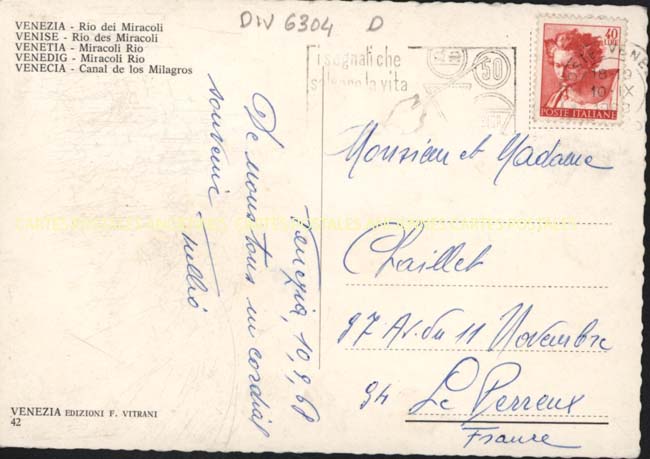 DIV 6304 D
VENEZIA - Rio dei Miracoli
VENISE - Rio des Miracoli
VENETIA - Miracoli Rio
VENEDIG - Miracoli Rio
VENECIA - Canal de los Milagros
i segnali che
salvano la vita
50
40
LIRE
POSTE ITALIANE
18-19
10 IX
Venezia, 10, 9, 68
De nous tous un cordial
souvenir
Tullio
Monsieur et Madame
Chaillet
97 Av. du 11 Novembre
94 Le Perreux
France
CARTES POSTALES ANCIENNES CARTES POSTALES ANCIENNES CARTES POSTALES
VENEZIA EDIZIONI F. VITRANI
42